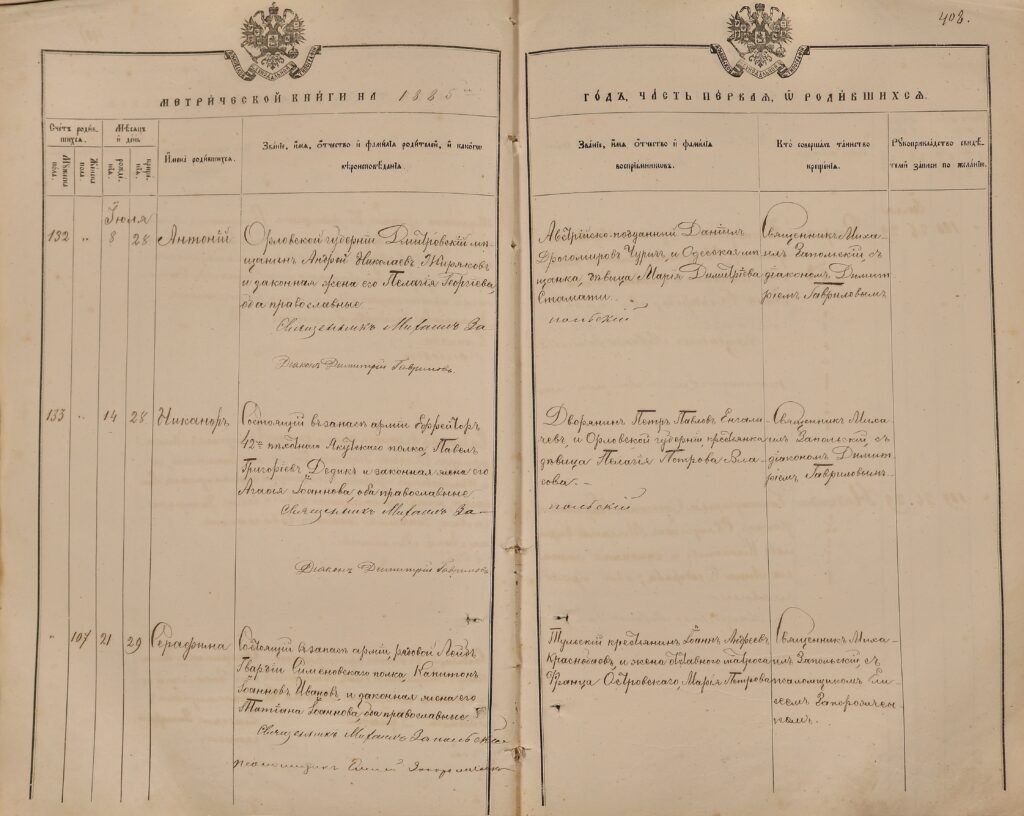 408.
МЕТРИЧЕСКОЙ КНИГИ НА 1885 ГОДЪ, ЧАСТЬ ПЕРВАЯ, Ѿ РОДИВШИХСЯ.
Счетъ родив-
шихся.
Мужеска
пола.
Женска
пола.
Мѣсяцъ
и день
рожде-
нія.
креще-
нія.
Имена родившихся.
Званіе, имя, отчество и фамилія родителей, и какого
вѣроисповѣданія.
Званіе, имя, отчество и фамилія
воспріемниковъ.
Кто совершалъ таинство
крещенія.
Рукоприкладство свидѣ-
телей записи по желанію.
Іюля
132 „ 8 28 Антоній
Орловской губерніи Дмитровскій мѣ-
щанинъ Андрей Николаевъ Жиряковъ
и законная жена его Пелагія Георгіева,
оба православные
Священникъ Михаилъ За-
польскій
Діаконъ Димитрій Гавриловъ.
Австрійско-подданный Даніилъ
Дрогомировъ Чуричъ, и Одесская мѣ-
щанка, дѣвица Марія Димитріева
Стамати.
Священникъ Миха-
илъ Запольскій, съ
діакономъ Димит-
ріемъ Гавриловымъ
133 „ 14 28 Никаноръ
Состоящій въ запасѣ арміи Ефрейторъ
42го пѣхотнаго Якутскаго полка, Павелъ
Григоріевъ Дедикъ и законная жена его
Агафія Іоаннова, оба православные
Священникъ Михаилъ За-
польскій
Діаконъ Димитрій Гавриловъ
Дворянинъ Петръ Павловъ Енгалы-
чевъ, и Орловской губерніи крестьянка
дѣвица Пелагія Петрова Вла-
сова.
Священникъ Миха-
илъ Запольскій, съ
діакономъ Димит-
ріемъ Гавриловымъ
„ 107 21 29 Серафима
Состоящій въ запасѣ арміи, рядовой Лейбъ
Гвардіи Семеновскаго полка Капитонъ
Іоанновъ Ивановъ, и законная жена его
Татіана Іоаннова, оба православные
Священникъ Михаилъ Запольскій
псаломщикъ Елисей
Тульскій крестьянинъ Іоаннъ Андреевъ
и жена отставного матроса
Франца Островскаго, Марія Петрова
Священникъ Миха-
илъ Запольскій, съ
псаломщикомъ Ели-
сеемъ Запорожчен-